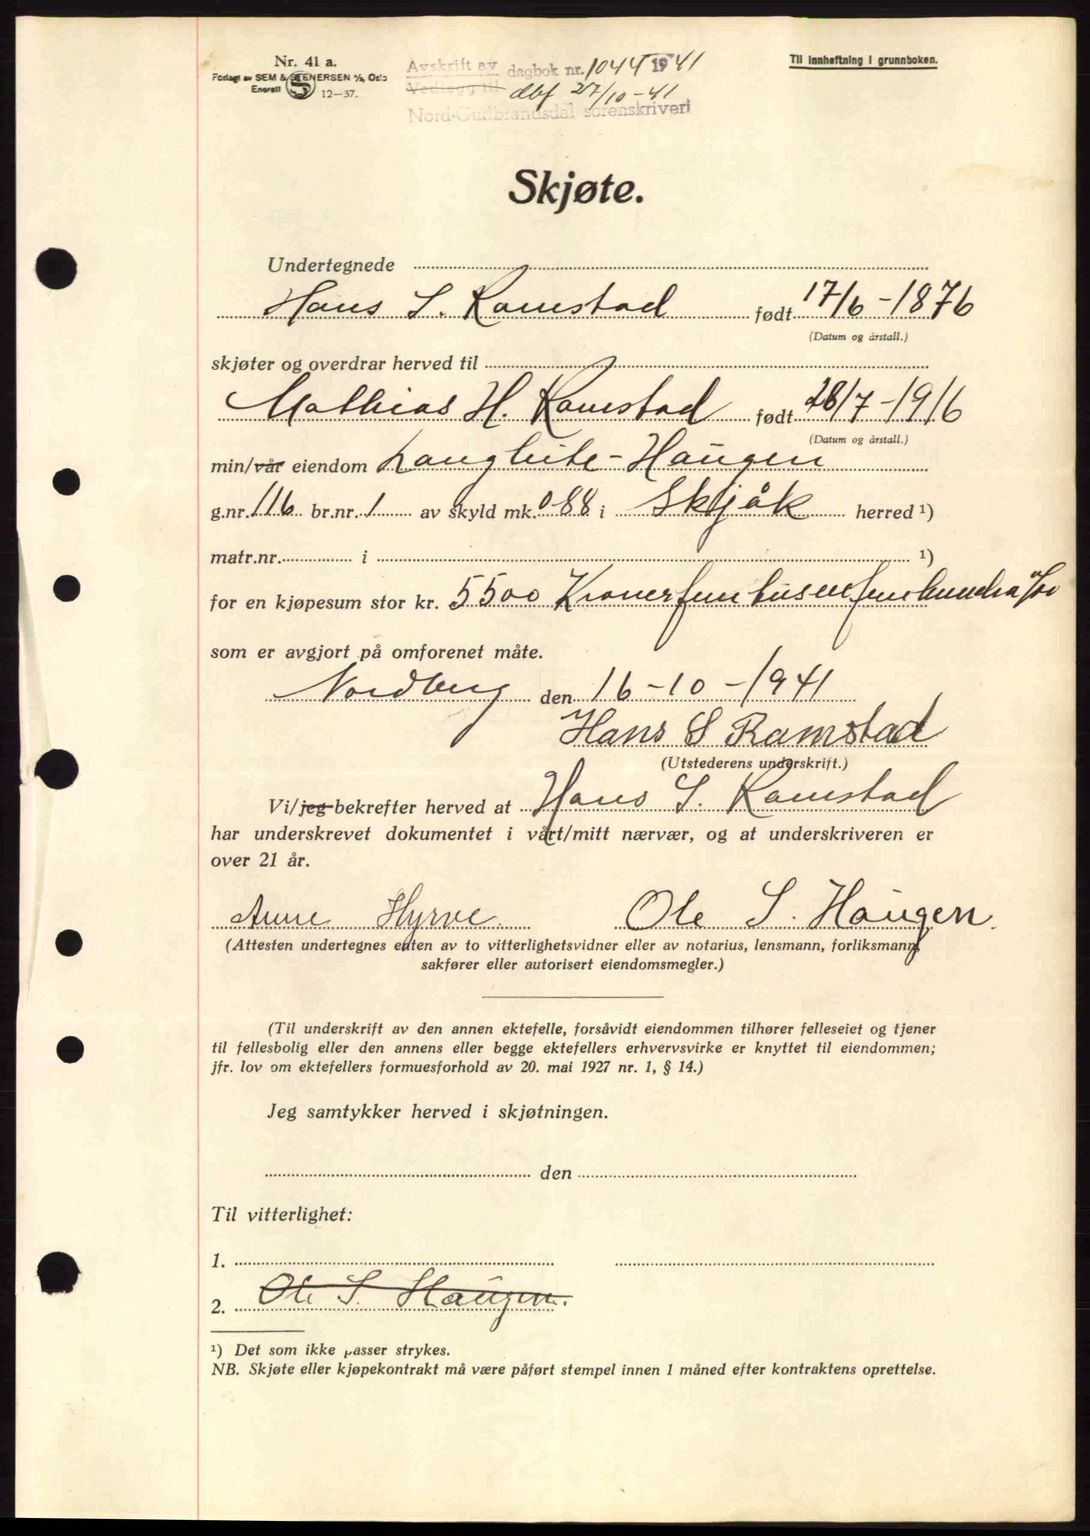 Nr. 41 a.
Forlagt av SEM & STENERSEN A/S, Oslo
Enerett 12-37.
Avskrift av dagbok nr. 1044 1941
Vedlegg til dbf 27/10-41
Nord-Gudbrandsdal sorenskriveri
Til innheftning i grunnboken.
Skjøte.
Undertegnede
Hans S. Ramstad født 17/6-1876
(Datum og årstall.)
skjøter og overdrar herved til
Mathias H. Ramstad født 28/7-1916
(Datum og årstall.)
min/vår eiendom Langleite-Haugen
g.nr. 116 br.nr. 1 av skyld mk. 0-88 i Skjåk herred ¹)
matr.nr. i ¹)
for en kjøpesum stor kr. 5500 Kroner femtusenfemhundra
som er avgjort på omforenet måte.
Nordberg den 16-10-1941
Hans S Ramstad
(Utstederens underskrift.)
Vi/jeg bekrefter herved at Hans S. Ramstad
har underskrevet dokumentet i vårt/mitt nærvær, og at underskriveren er
over 21 år.
Anne Hyrve. Ole S. Haugen.
(Attesten undertegnes enten av to vitterlighetsvidner eller av notarius, lensmann, forliksmann,
sakfører eller autorisert eiendomsmegler.)
(Til underskrift av den annen ektefelle, forsåvidt eiendommen tilhører felleseiet og tjener
til fellesbolig eller den annens eller begge ektefellers erhvervsvirke er knyttet til eiendommen;
jfr. lov om ektefellers formuesforhold av 20. mai 1927 nr. 1, § 14.)
Jeg samtykker herved i skjøtningen.
den
Til vitterlighet:
1.
2. Ole S. Haugen.
¹) Det som ikke passer strykes.
NB. Skjøte eller kjøpekontrakt må være påført stempel innen 1 måned efter kontraktens oprettelse.